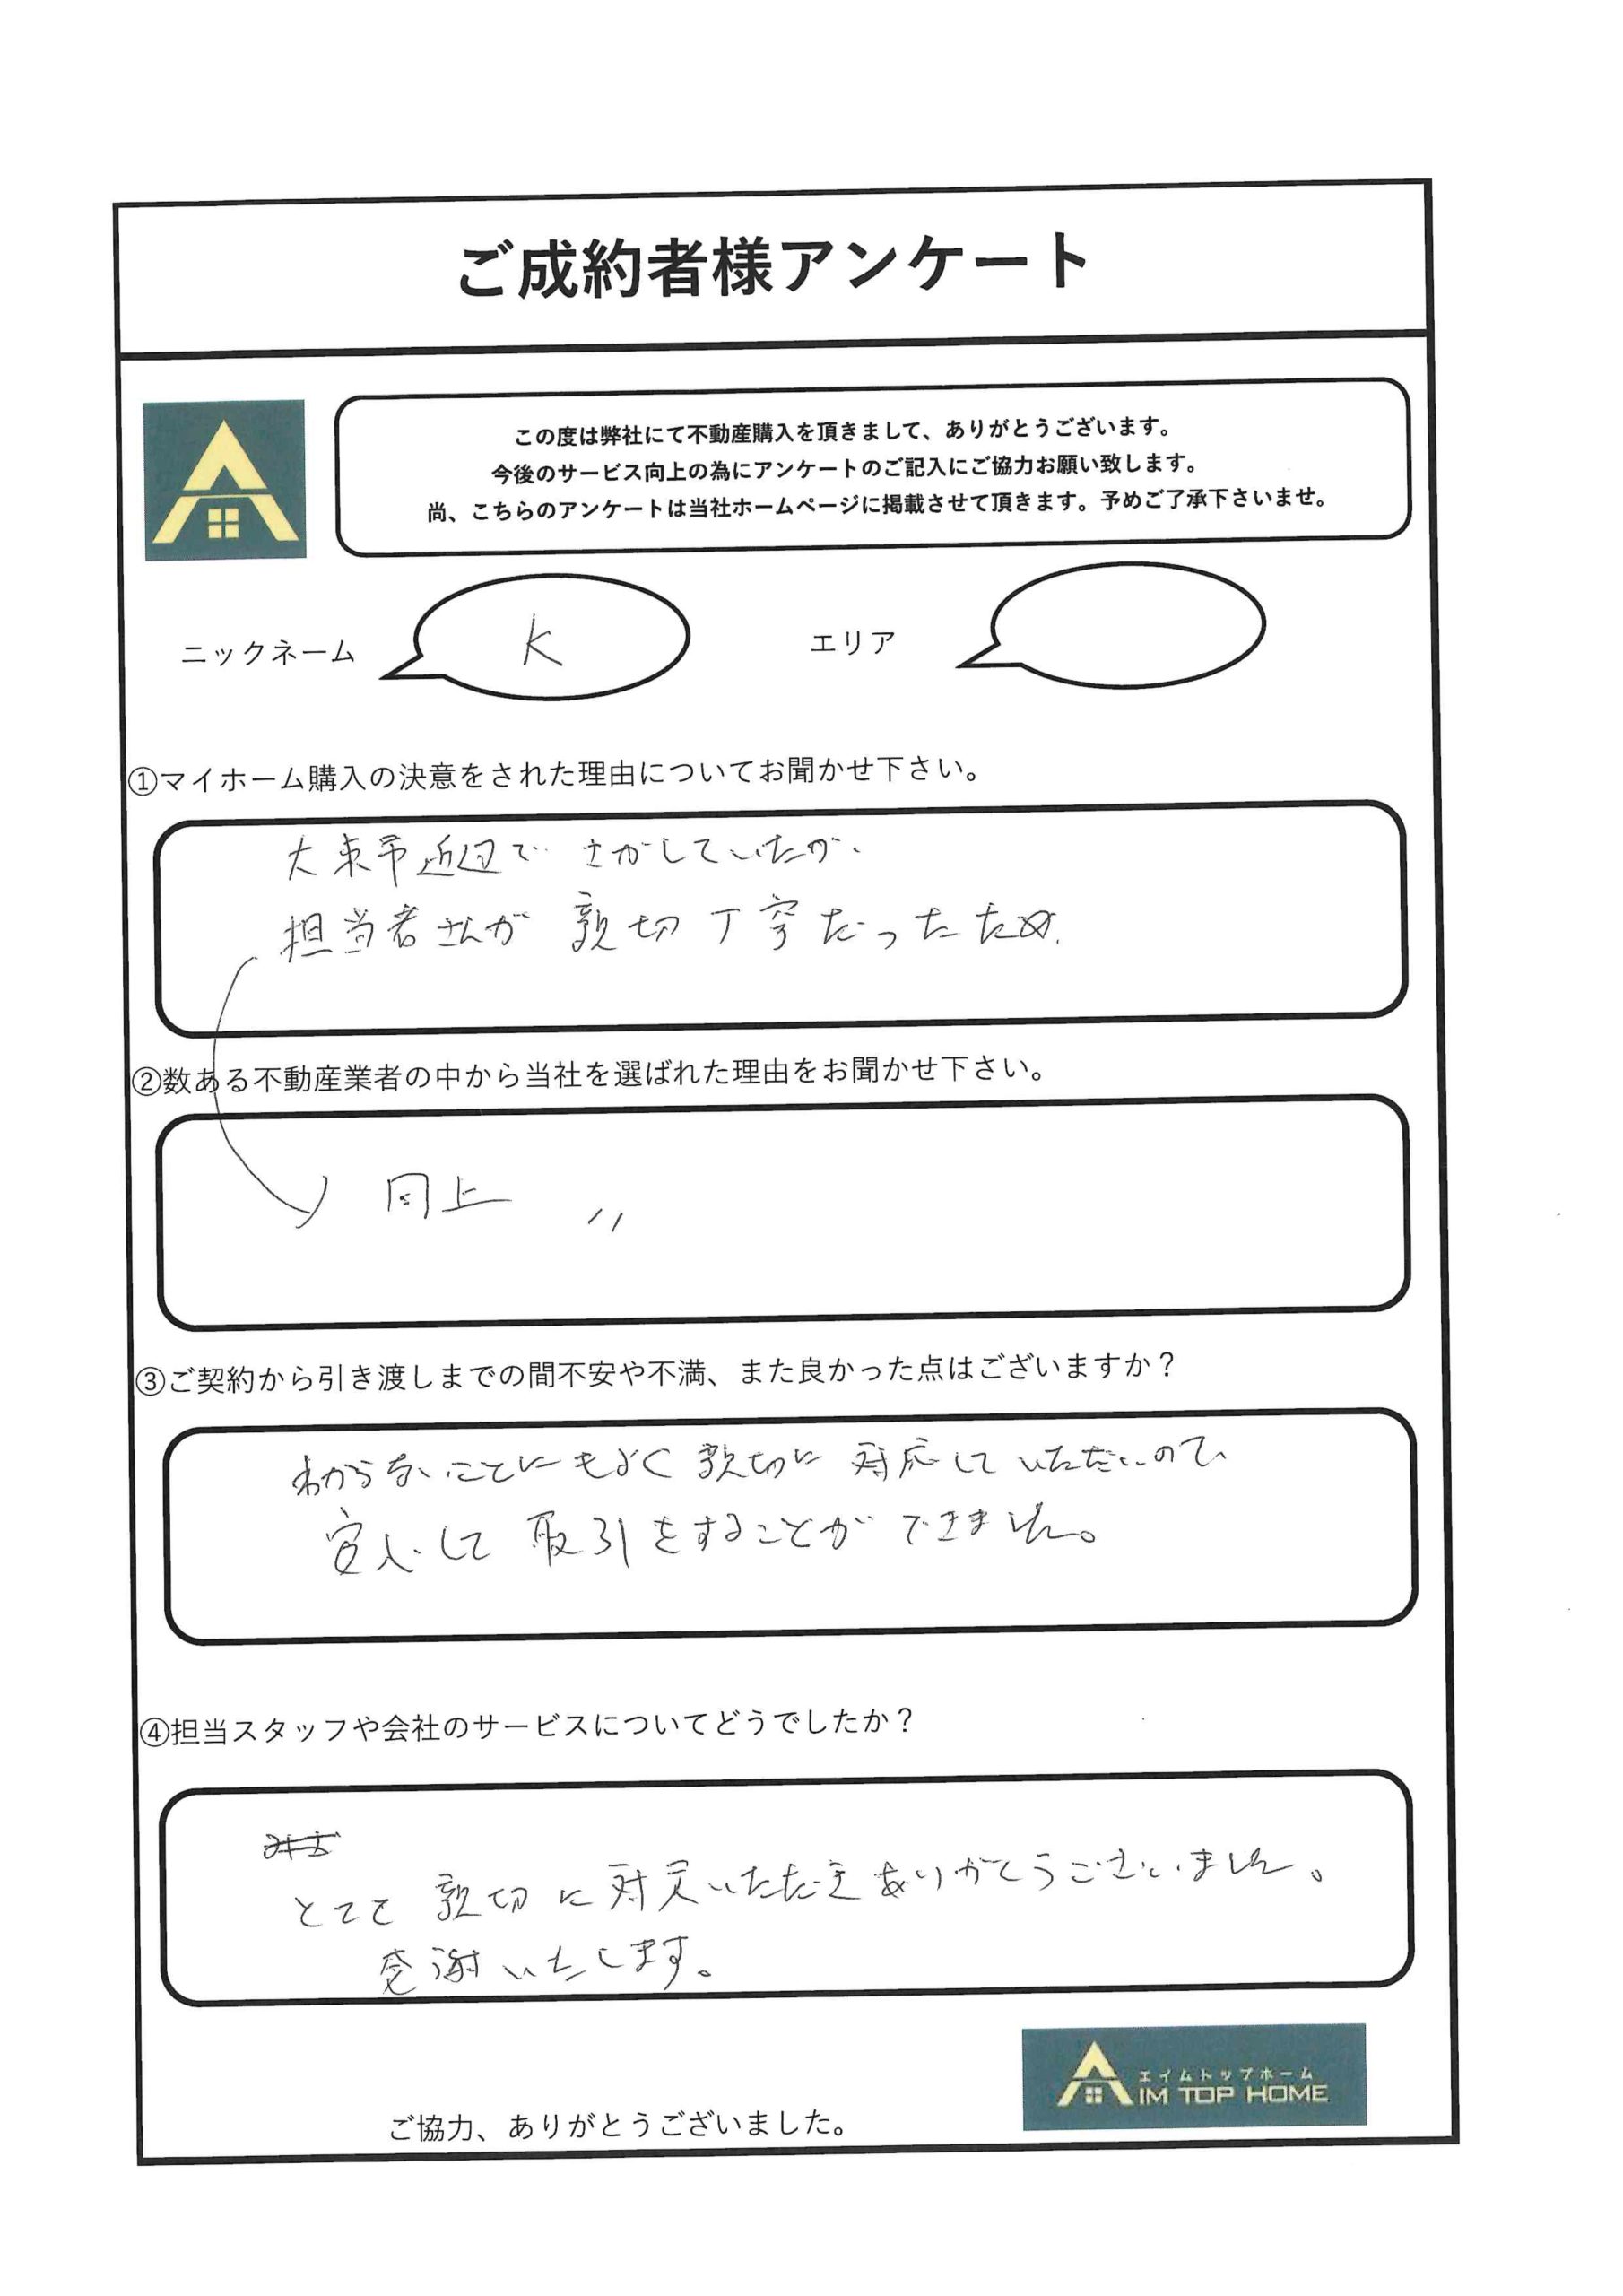 ご成約者様アンケート
この度は弊社にて不動産購入を頂きまして、ありがとうございます。
今後のサービス向上の為にアンケートのご記入にご協力お願い致します。
尚、こちらのアンケートは当社ホームページに掲載させて頂きます。予めご了承下さいませ。
ニックネーム K エリア
①マイホーム購入の決意をされた理由についてお聞かせ下さい。
大東市近辺でさがしていたが、
担当者さんが親切丁寧だったため.
②数ある不動産業者の中から当社を選ばれた理由をお聞かせ下さい。
同上 〃
③ご契約から引き渡しまでの間不安や不満、また良かった点はございますか？
わからないことにもよく親切に対応していただいので、
安心して取引をすることができました。
④担当スタッフや会社のサービスについてどうでしたか？
とても親切に対応いただきありがとうございました。
感謝いたします。
エイムトップホーム
AIM TOP HOME
ご協力、ありがとうございました。